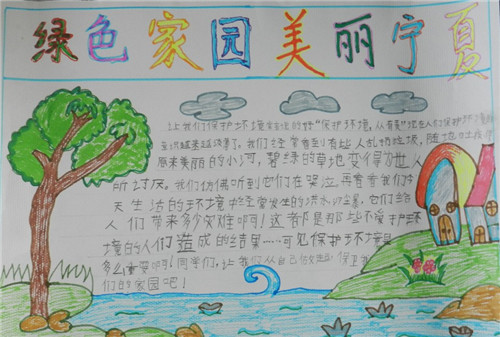 绿色家园美丽宁夏
让我们保护环境 "保护环境,从 保护环境
我们经常看到有些人乱扔垃圾,随地吐痰
原来美丽的小河,碧绿的草地变得为世人
所讨厌。我们仿佛听到它们在哭泣再看看我们今
天生活的环境 经常发生的洪水 它们给
人们带来多少灾难啊!这都是那些不爱护环
境的人们造成的结果……可见保护环境是
多么重要啊!同学们,让我们从自己做起 保卫
们的家园吧!